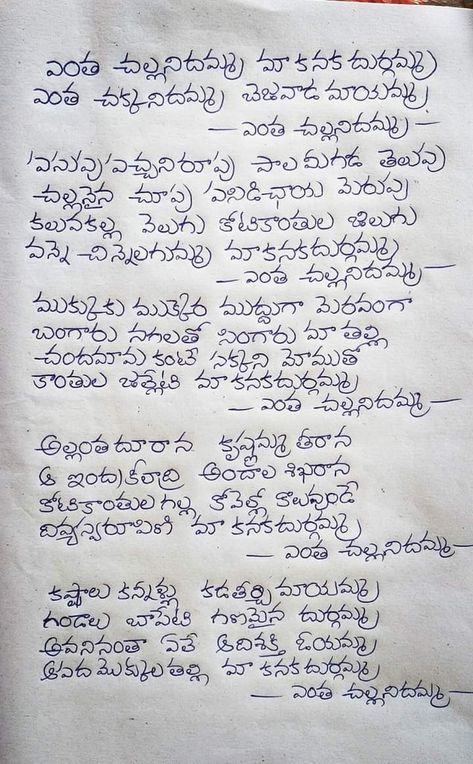 ఎంత చల్లనిదమ్మా మా కనకదుర్గమ్మా
ఎంత చక్కనిదమ్మా బెజవాడ మాయమ్మా
— ఎంత చల్లనిదమ్మా —
పసుపు పచ్చనిరూపు పాల మీగడ తెలుపు
చల్లనైన చూపు పసిడిఛాయ మెరుపు
కలువకళ్ల వెలుగు కోటికాంతుల జిలుగు
వన్నె చిన్నెలగుమ్మా మా కనకదుర్గమ్మా
— ఎంత చల్లనిదమ్మా —
ముక్కుకు ముక్కెర ముద్దుగా మెరవంగా
బంగారు నగలతో సింగారు మా తల్లి
చందమామ కంటే సక్కని మోముతో
కాంతుల జల్లేటి మా కనకదుర్గమ్మా
— ఎంత చల్లనిదమ్మా —
అల్లంత దూరాన కృష్ణమ్మ తీరాన
ఆ ఇంద్రకీలాద్రి అందాల శిఖరాన
కోటికాంతుల గల్ల కోవెల్లో కొలువుండే
దివ్యస్వరూపిణి మా కనకదుర్గమ్మా
— ఎంత చల్లనిదమ్మా —
కష్టాలు కన్నీళ్లు కడతీర్చి మాయమ్మా
గండాలు బాపేటి గణమైన దుర్గమ్మా
అవనినంతా ఏలే ఆదిశక్తి ఓయమ్మా
ఆపద మొక్కుల తల్లి మా కనకదుర్గమ్మా
— ఎంత చల్లనిదమ్మా —